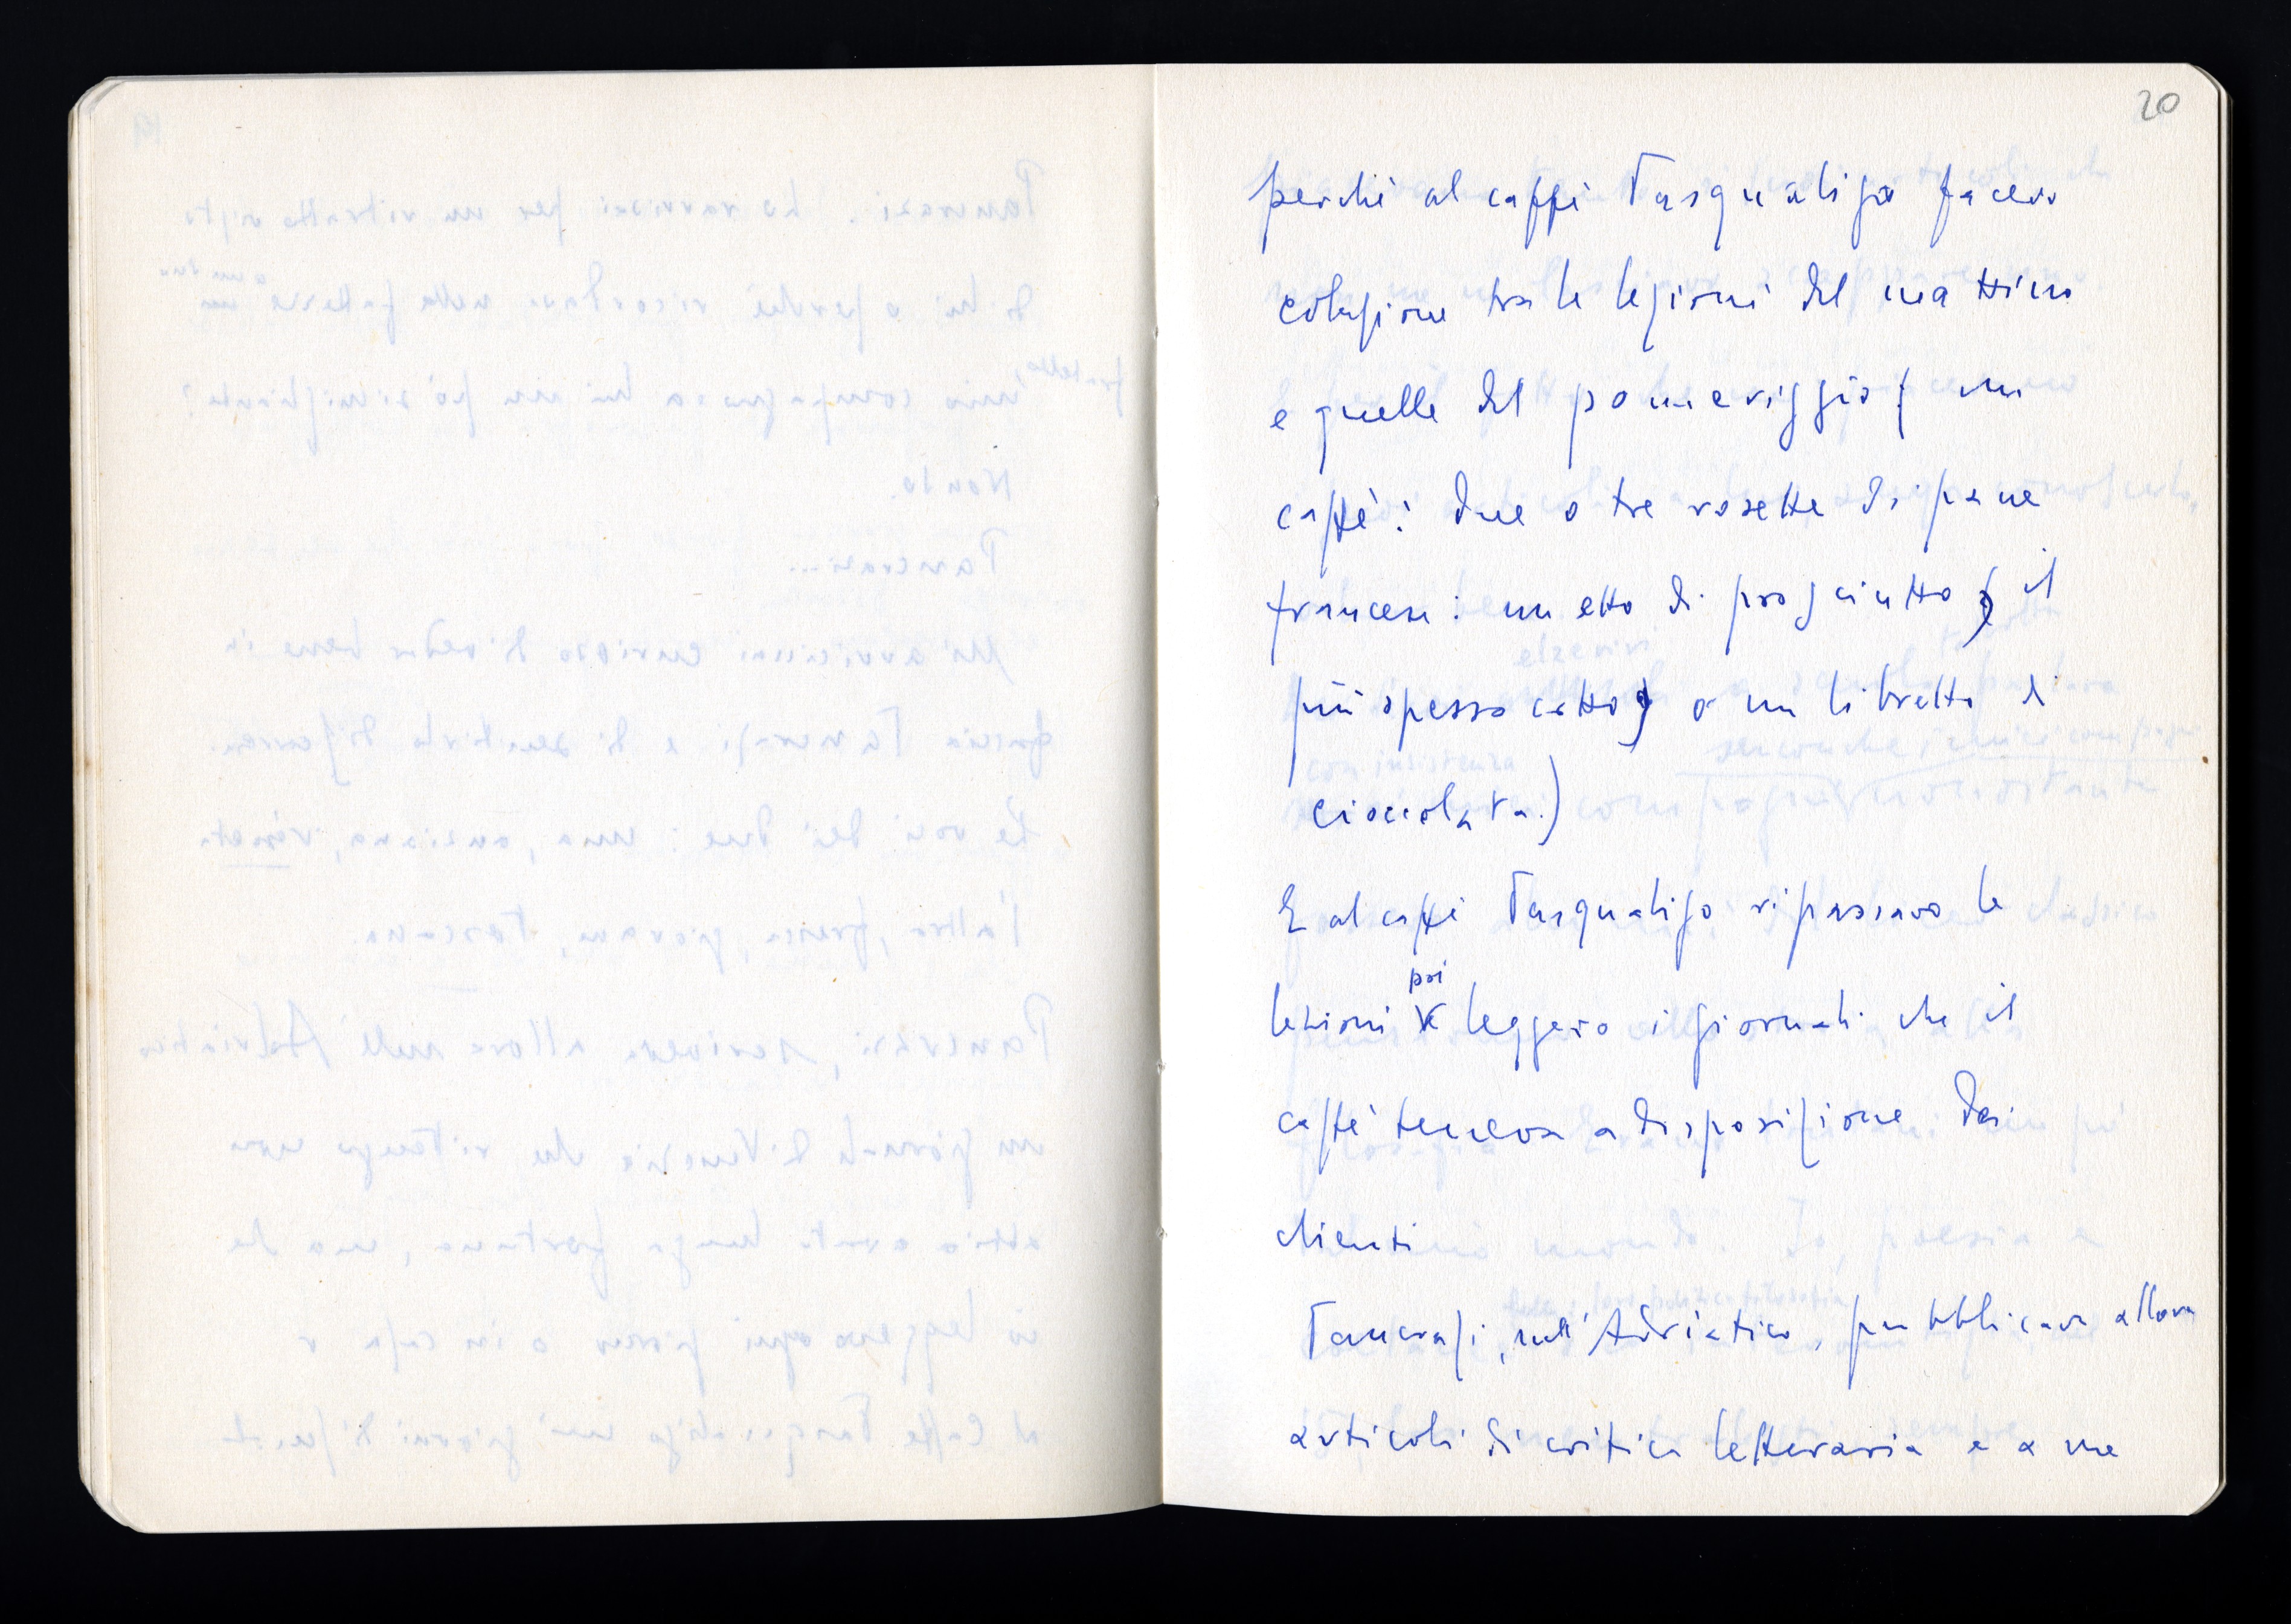 20
perchè al caffè Pasqualigo facevo
colazione tra le lezioni del mattino
e quelle del pomeriggio ( un
caffè: due o tre rosette di pane
francese: un etto di prosciutto, il
più spesso cotto, o un libretto di
cioccolata.)
E al caffè Pasqualigo ripassavo le
poi
lezioni e leggevo i giornali che il
caffè teneva a disposizione dei
clienti
Pancrazi, nell'Adriatico, pubblicava allora
articoli di critica letteraria e a me